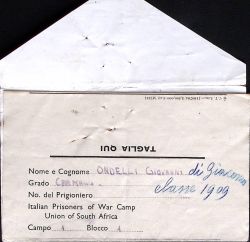 TAGLIA QUI
Nome e Cognome ONDELLI GIOVANNI di Giacomo
Grado classe 1909
No. del Prigioniero
Italian Prisoners of War Camp
Union of South Africa
Campo Blocco